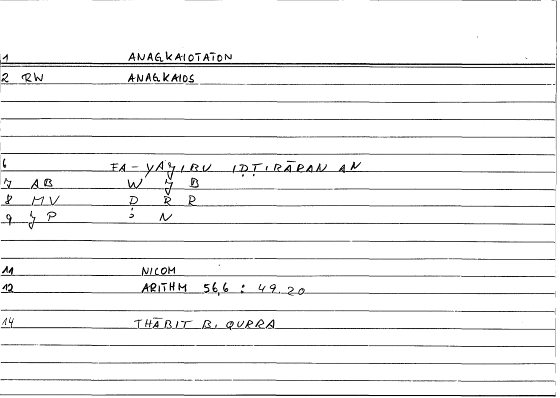 1 ANAGKAIOTATON
2 RW ANAGKAIOS
6 FA-YAǦIBU IḌṬIRĀRAN AN
7 AB W Ǧ B
8 MV Ḍ R R
9 ǦP : N
11 NICOM
12 ARITHM 56,6 : 49.20
14 THĀBIT B. QURRA